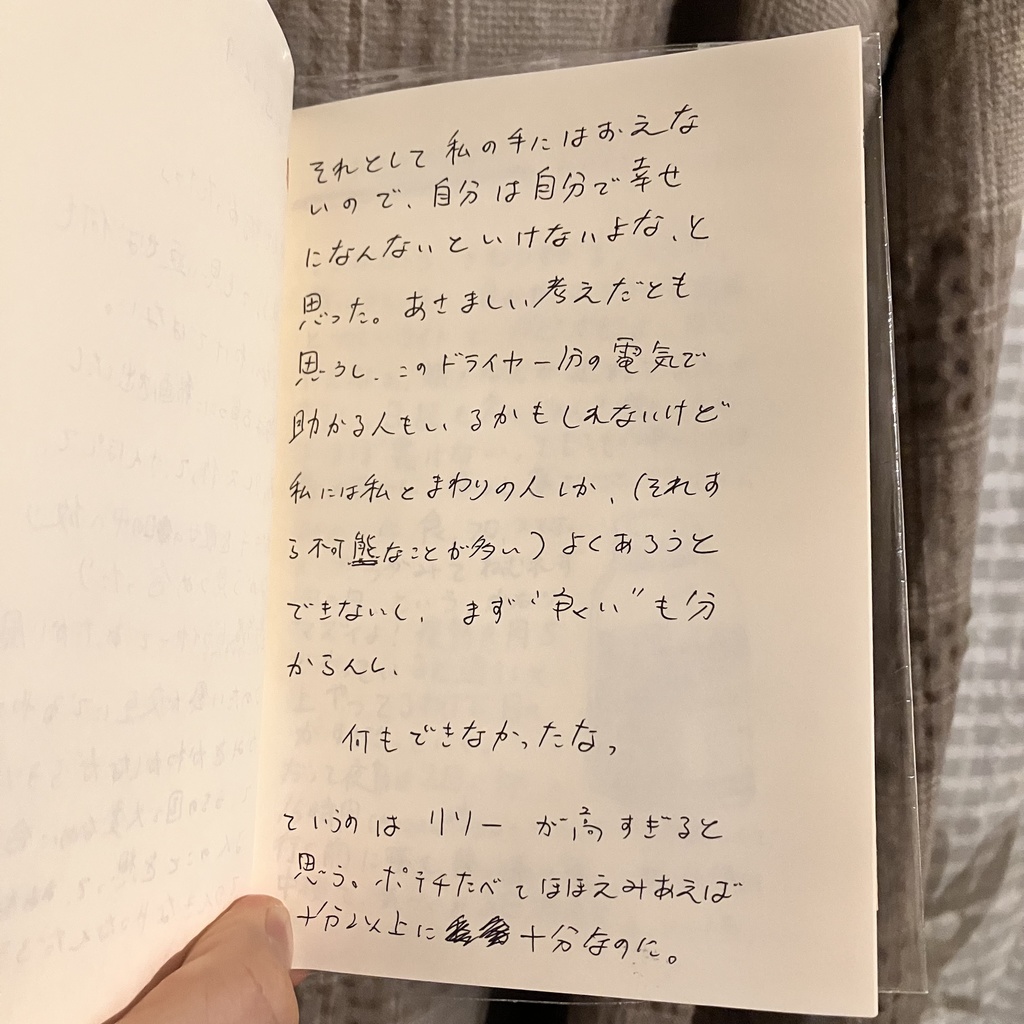 それとして 私の手にはおえな
いので、自分は自分で幸せ
になんないといけないよな、と
思った。あさましい考えだとも
思うし、このドライヤー1分の電気で
助かる人もいるかもしれないけど
私には私とまわりの人しか、(それす
ら不可態なことが多い)よくあろうと
できないし、まず“良い”も分
からんし、
何もできなかったな、
ていうのは リリー が高すぎると
思う。ポテチたべてほほえみあえば
十分以上に 十分なのに。